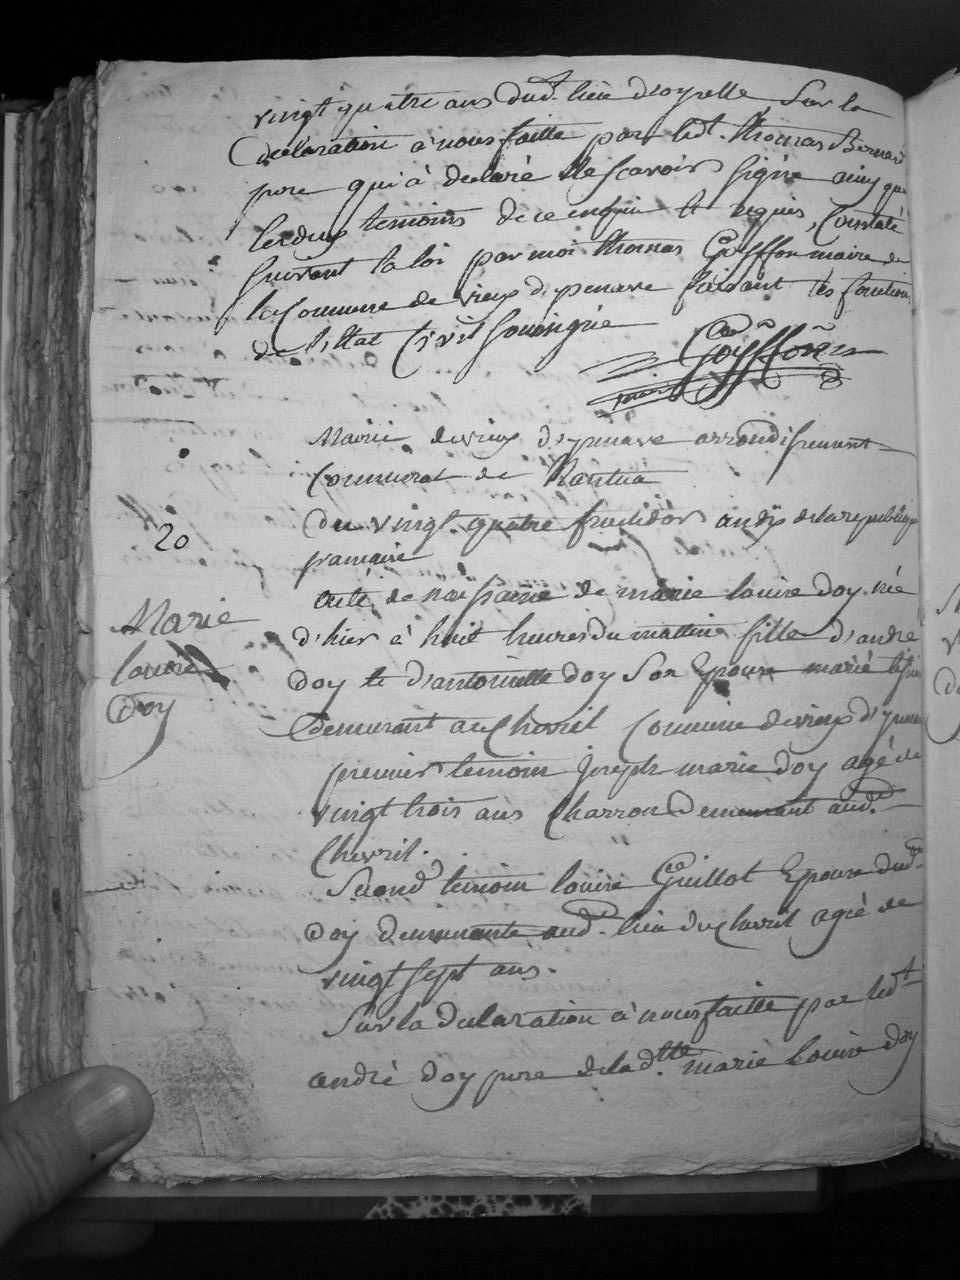 vingt quatre ans dud. lieu d'oyselle Sur la
declaration à nous faitte par led.t thomas Bernard
pere qui à declaré Ne scavoir Signé ainsy que
lesdeux temoins de ce enquis et requis, Constaté
suivant la loi par moi thomas Goyffon maire de
la Commune de vieux d'yzenave faisant les fonctions
de l'Etat Civil soussigné
Goyffon m
Mairie de vieux d'yzenave arrondissement
Communal de Nantua
20
Du vingt quatre fructidor an dix de la republique
francaise
Marie
louise
Doy
Acte de naissance de marie louise Doy née
d'hier à huit heures du mattin fille d'andre
Doy et d'antoinette Doy Son Epouse marié
demurant au Chevril Commune de vieux d'yzenave
premier temoin Joseph marie Doy agé de
vingt trois ans Charron Demeurant aud.
Chevril.
Second temoin louise Guillot Epouse dud.
Doy demeurante aud. lieu du Chavril agée de
vingt sept ans.
Sur la declaration à nous faitte par led.t
andré Doy pere de lad.tte marie louise Doy